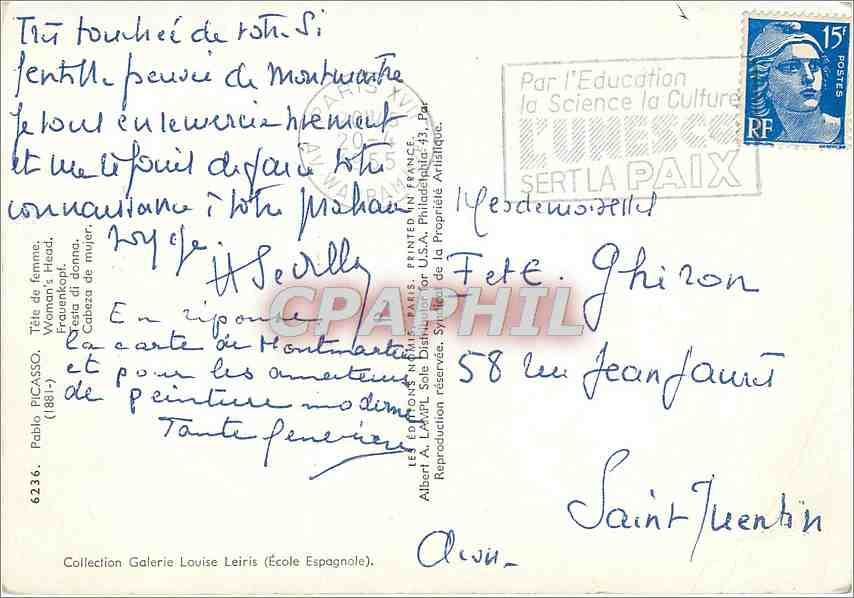 Très touchée de votre si
gentille pensée de Montmartre
je vous en remercie vivement
et me réjouis de faire votre
connaissance à votre prochain
voyage.
H Sevilly
En réponse à
la carte de Montmartre
et pour les amateurs
de peinture moderne
Tante Geneviève
6236. Pablo PICASSO. Tête de femme.
(1881-) Woman's Head.
Frauenkopf.
Testa di donna.
Cabeza de mujer.
Collection Galerie Louise Leiris (École Espagnole).
LES ÉDITIONS NOMIS, PARIS. PRINTED IN FRANCE.
Albert A. LAMPL Sole Distributor for U.S.A. Philadelphia 43, Pa.
Reproduction réservée. Syndicat de la Propriété Artistique.
PARIS XVI
20-4
55
AV. WAGRAM
Par l'Education
la Science la Culture
L'UNESCO
SERT LA PAIX
15F
POSTES
RF
Mesdemoiselles
F et E. Ghiron
58 rue Jean Jaurès
Saint Quentin
Aisne
CPAPHIL